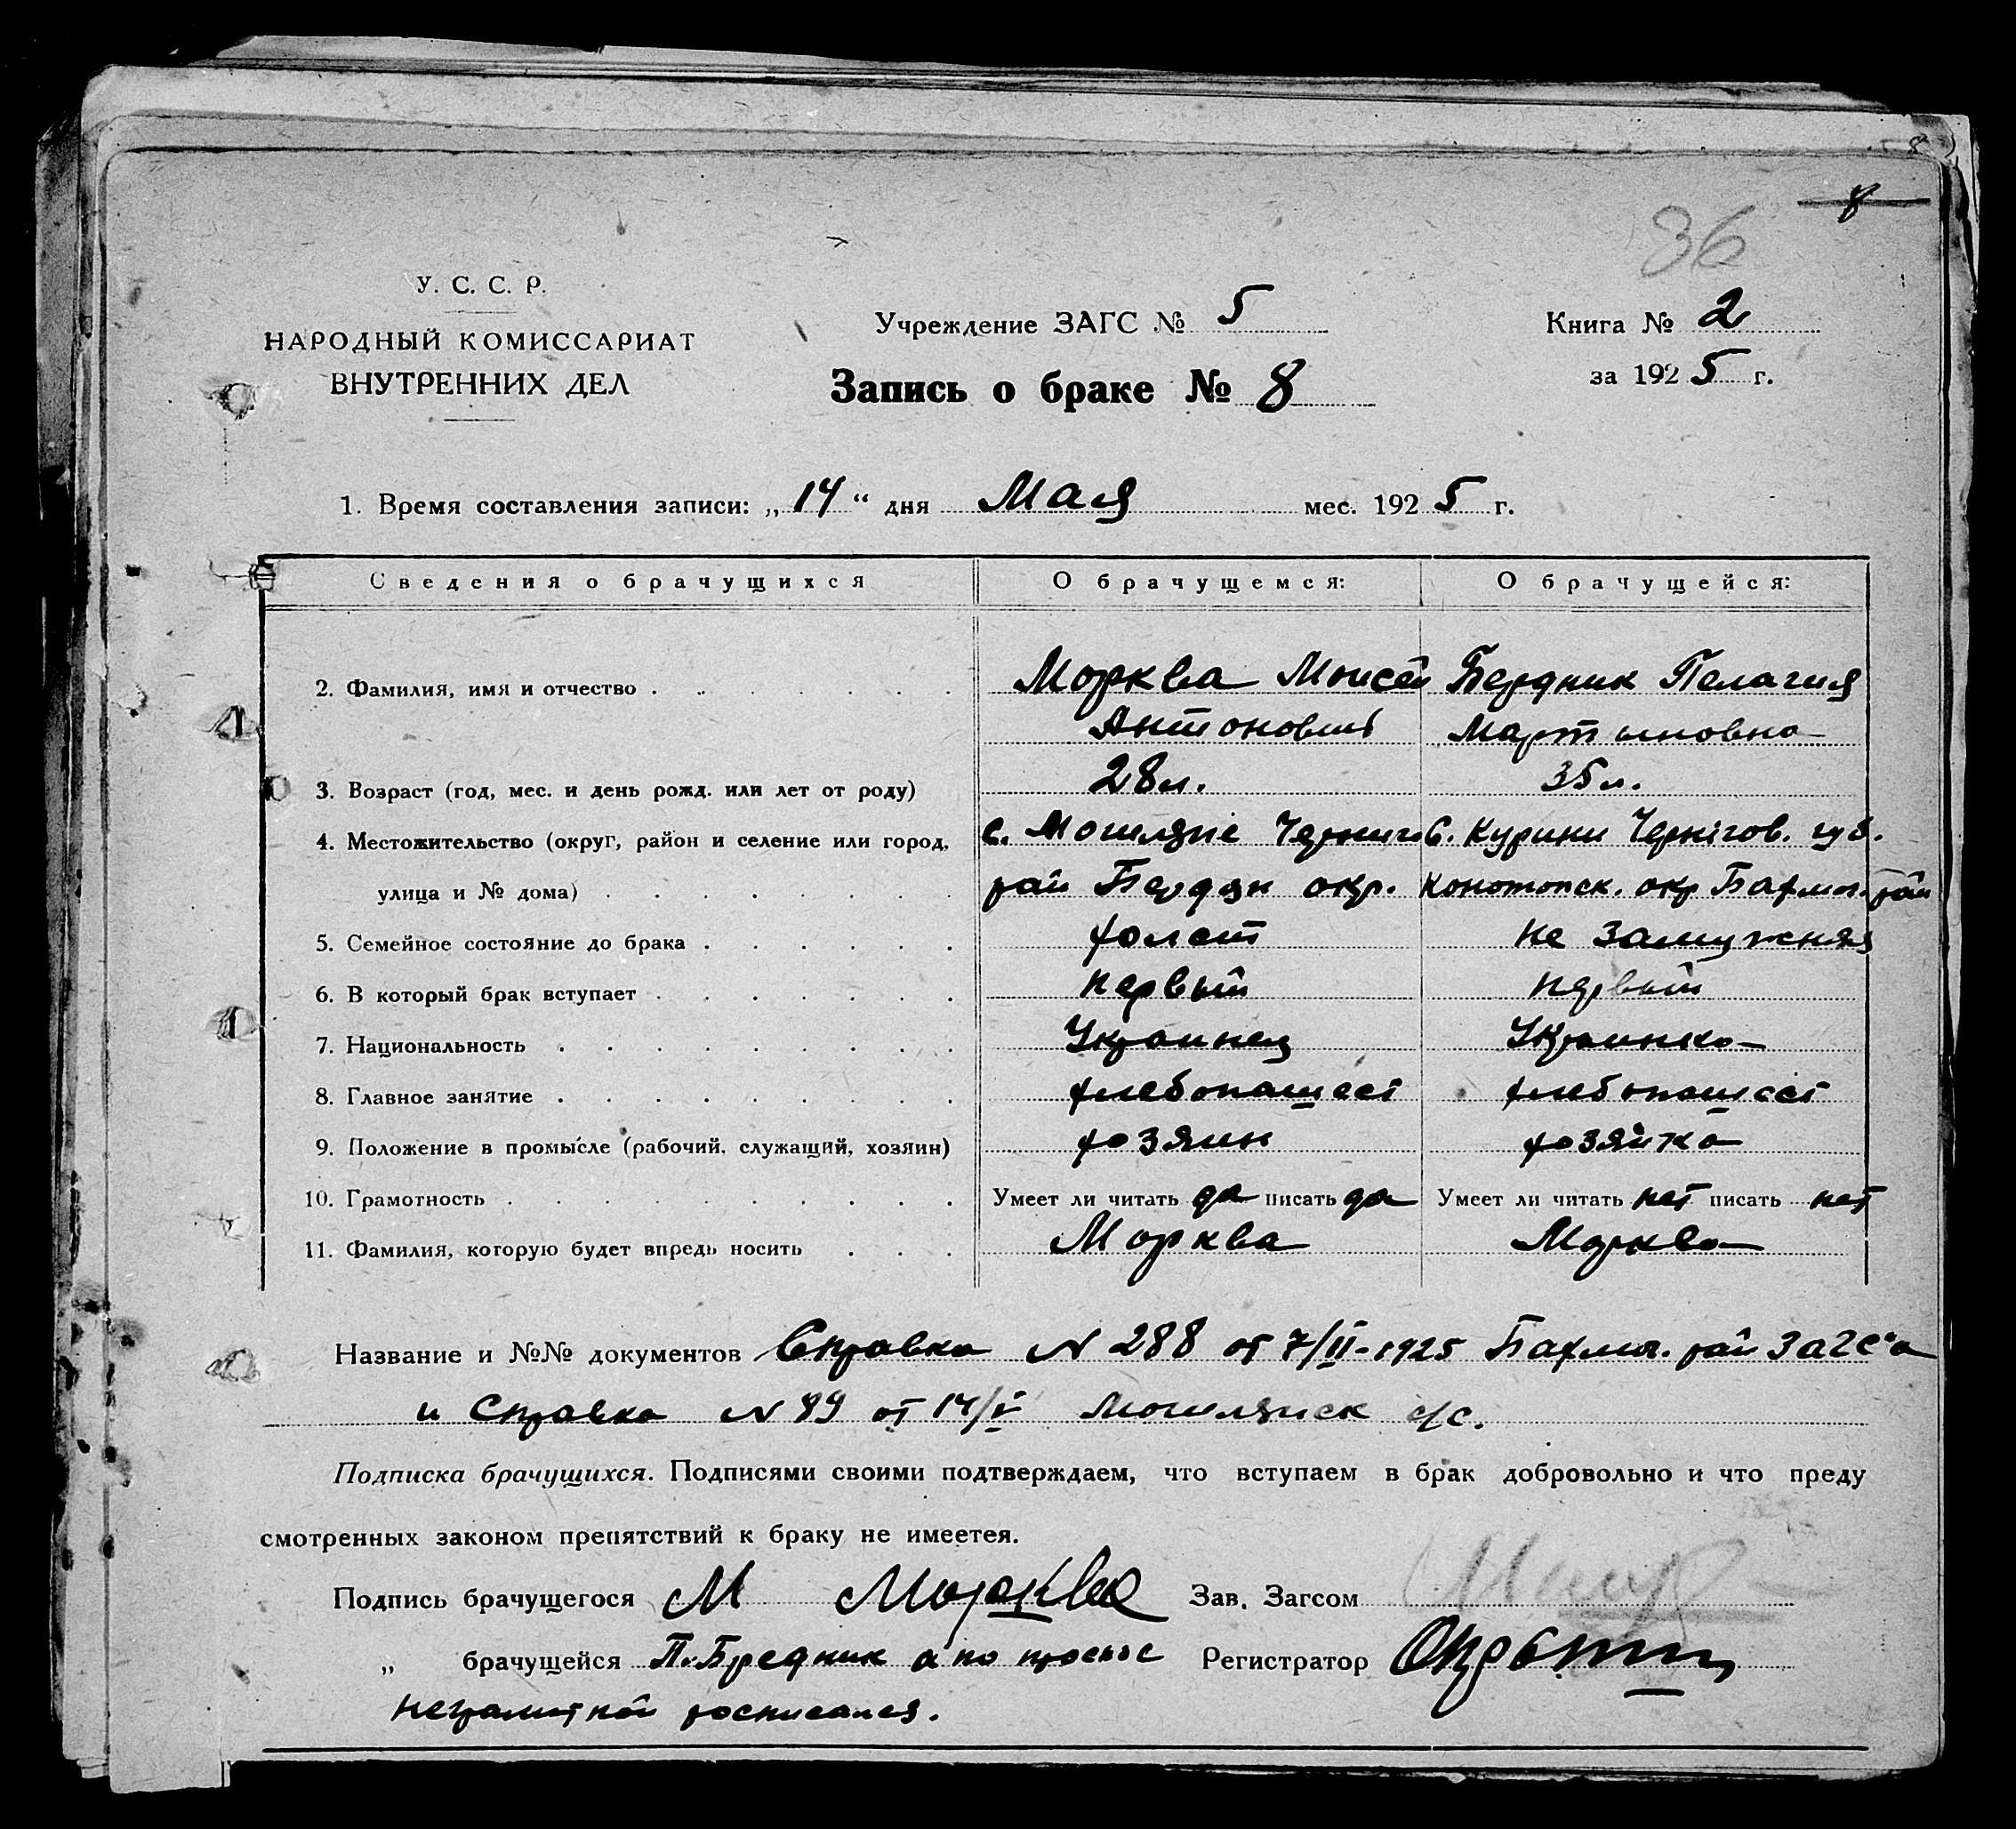 8
36
У. С. С. Р.
НАРОДНЫЙ КОМИССАРИАТ
ВНУТРЕННИХ ДЕЛ
Учреждение ЗАГС № 5
Книга № 2
Запись о браке № 8
за 1925 г.
1. Время составления записи: „14“ дня Мая мес. 1925 г.
Сведения о брачущихся О брачущемся: О брачущейся:
2. Фамилия, имя и отчество . . . . . . . Морква Моисей Бердник Пелагия
Антонович Мартыновна
3. Возраст (год, мес. и день рожд. или лет от роду) 28 л. 35 л.
4. Местожительство (округ, район и селение или город, с. Могиляне Черниг С. Курини Чернігов. губ.
улица и № дома) . . . . . . . . рай Бердян окр. Конотопск. окр Бахмач. рай
5. Семейное состояние до брака . . . . . . холост не замужняя
6. В который брак вступает . . . . . . . первый первый
7. Национальность . . . . . . . . . Украинец Украинка
8. Главное занятие . . . . . . . . . хлебопашест хлебопашест
9. Положение в промысле (рабочий, служащий, хозяин) хозяин хозяйка
10. Грамотность . . . . . . . . . . Умеет ли читать да писать да Умеет ли читать нет писать нет
11. Фамилия, которую будет впредь носить . . . Морква Морква
Название и №№ документов Справка N 288 от 7/II-1925 Бахмач. рай ЗАГС'а
и Справка N 89 от 14/V с/с.
Подписка брачущихся. Подписями своими подтверждаем, что вступаем в брак добровольно и что преду
смотренных законом препятствий к браку не имеетея.
Подпись брачущегося М Морква Зав. Загсом
„ брачущейся П. Бредник а по просьбе Регистратор
неграмотной росписался.